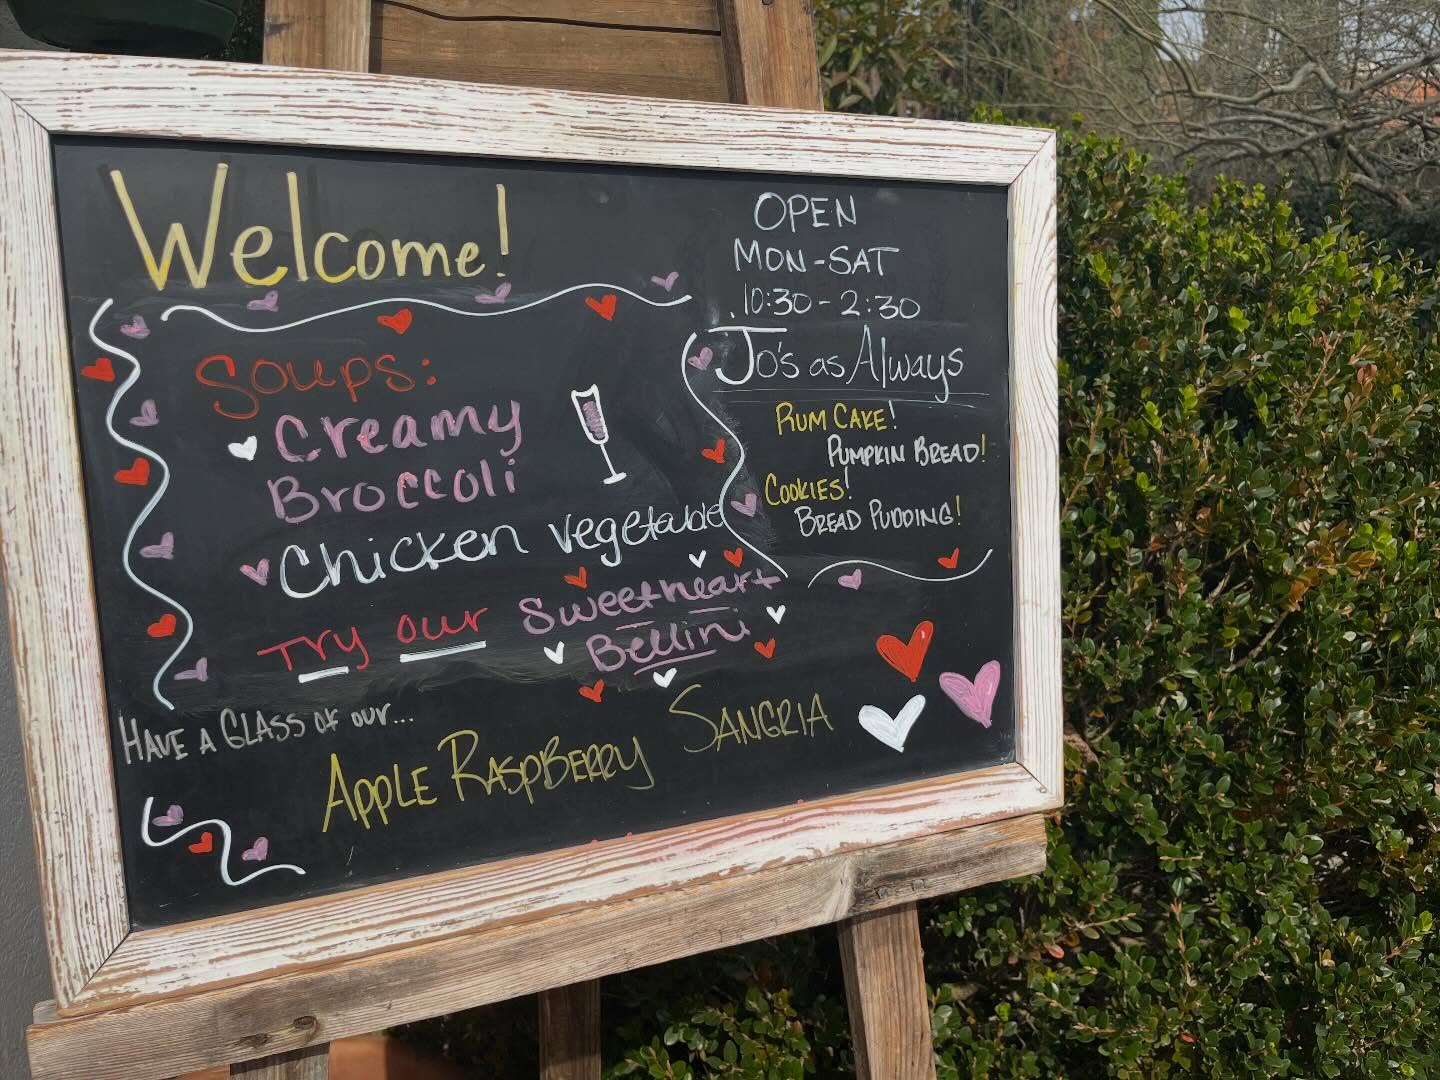 Welcome!
Soups:
Creamy
Broccoli
Chicken vegetable
Try our Sweetheart
Bellini
Have a Glass of our...
Apple Raspberry Sangria
OPEN
MON-SAT
10:30-2:30
Jo's as Always
Rum Cake!
Pumpkin Bread!
Cookies!
Bread Pudding!